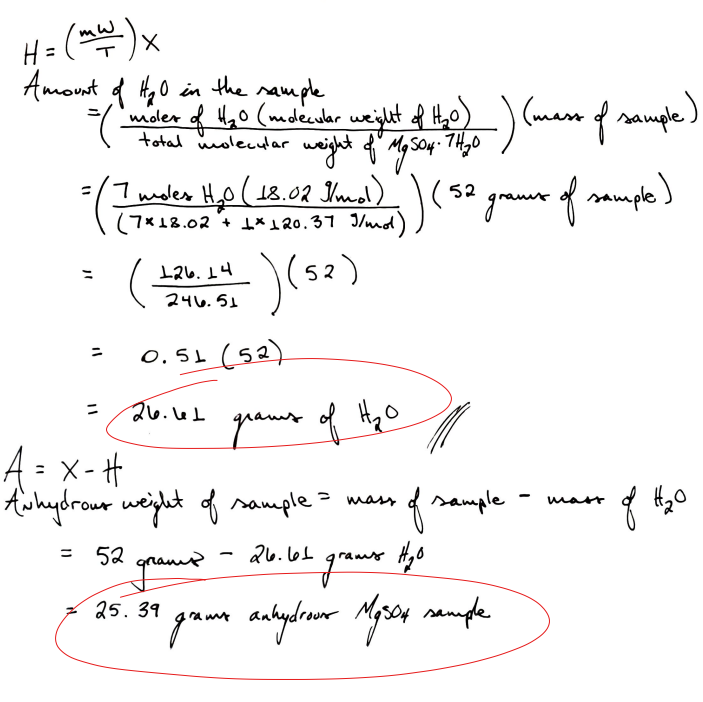 H = (mW/T) X
Amount of H₂O in the sample
= (moles of H₂O (molecular weight of H₂O) / total molecular weight of MgSO4·7H₂O) (mass of sample)
= (7 moles H₂O (18.02 g/mol) / (7×18.02 + 1×120.37 g/mol)) (52 grams of sample)
= (126.14 / 246.51) (52)
= 0.51 (52)
= 26.61 grams of H₂O
A = X - H
Anhydrous weight of sample = mass of sample - mass of H₂O
= 52 grams - 26.61 grams H₂O
= 25.39 grams anhydrous MgSO4 sample